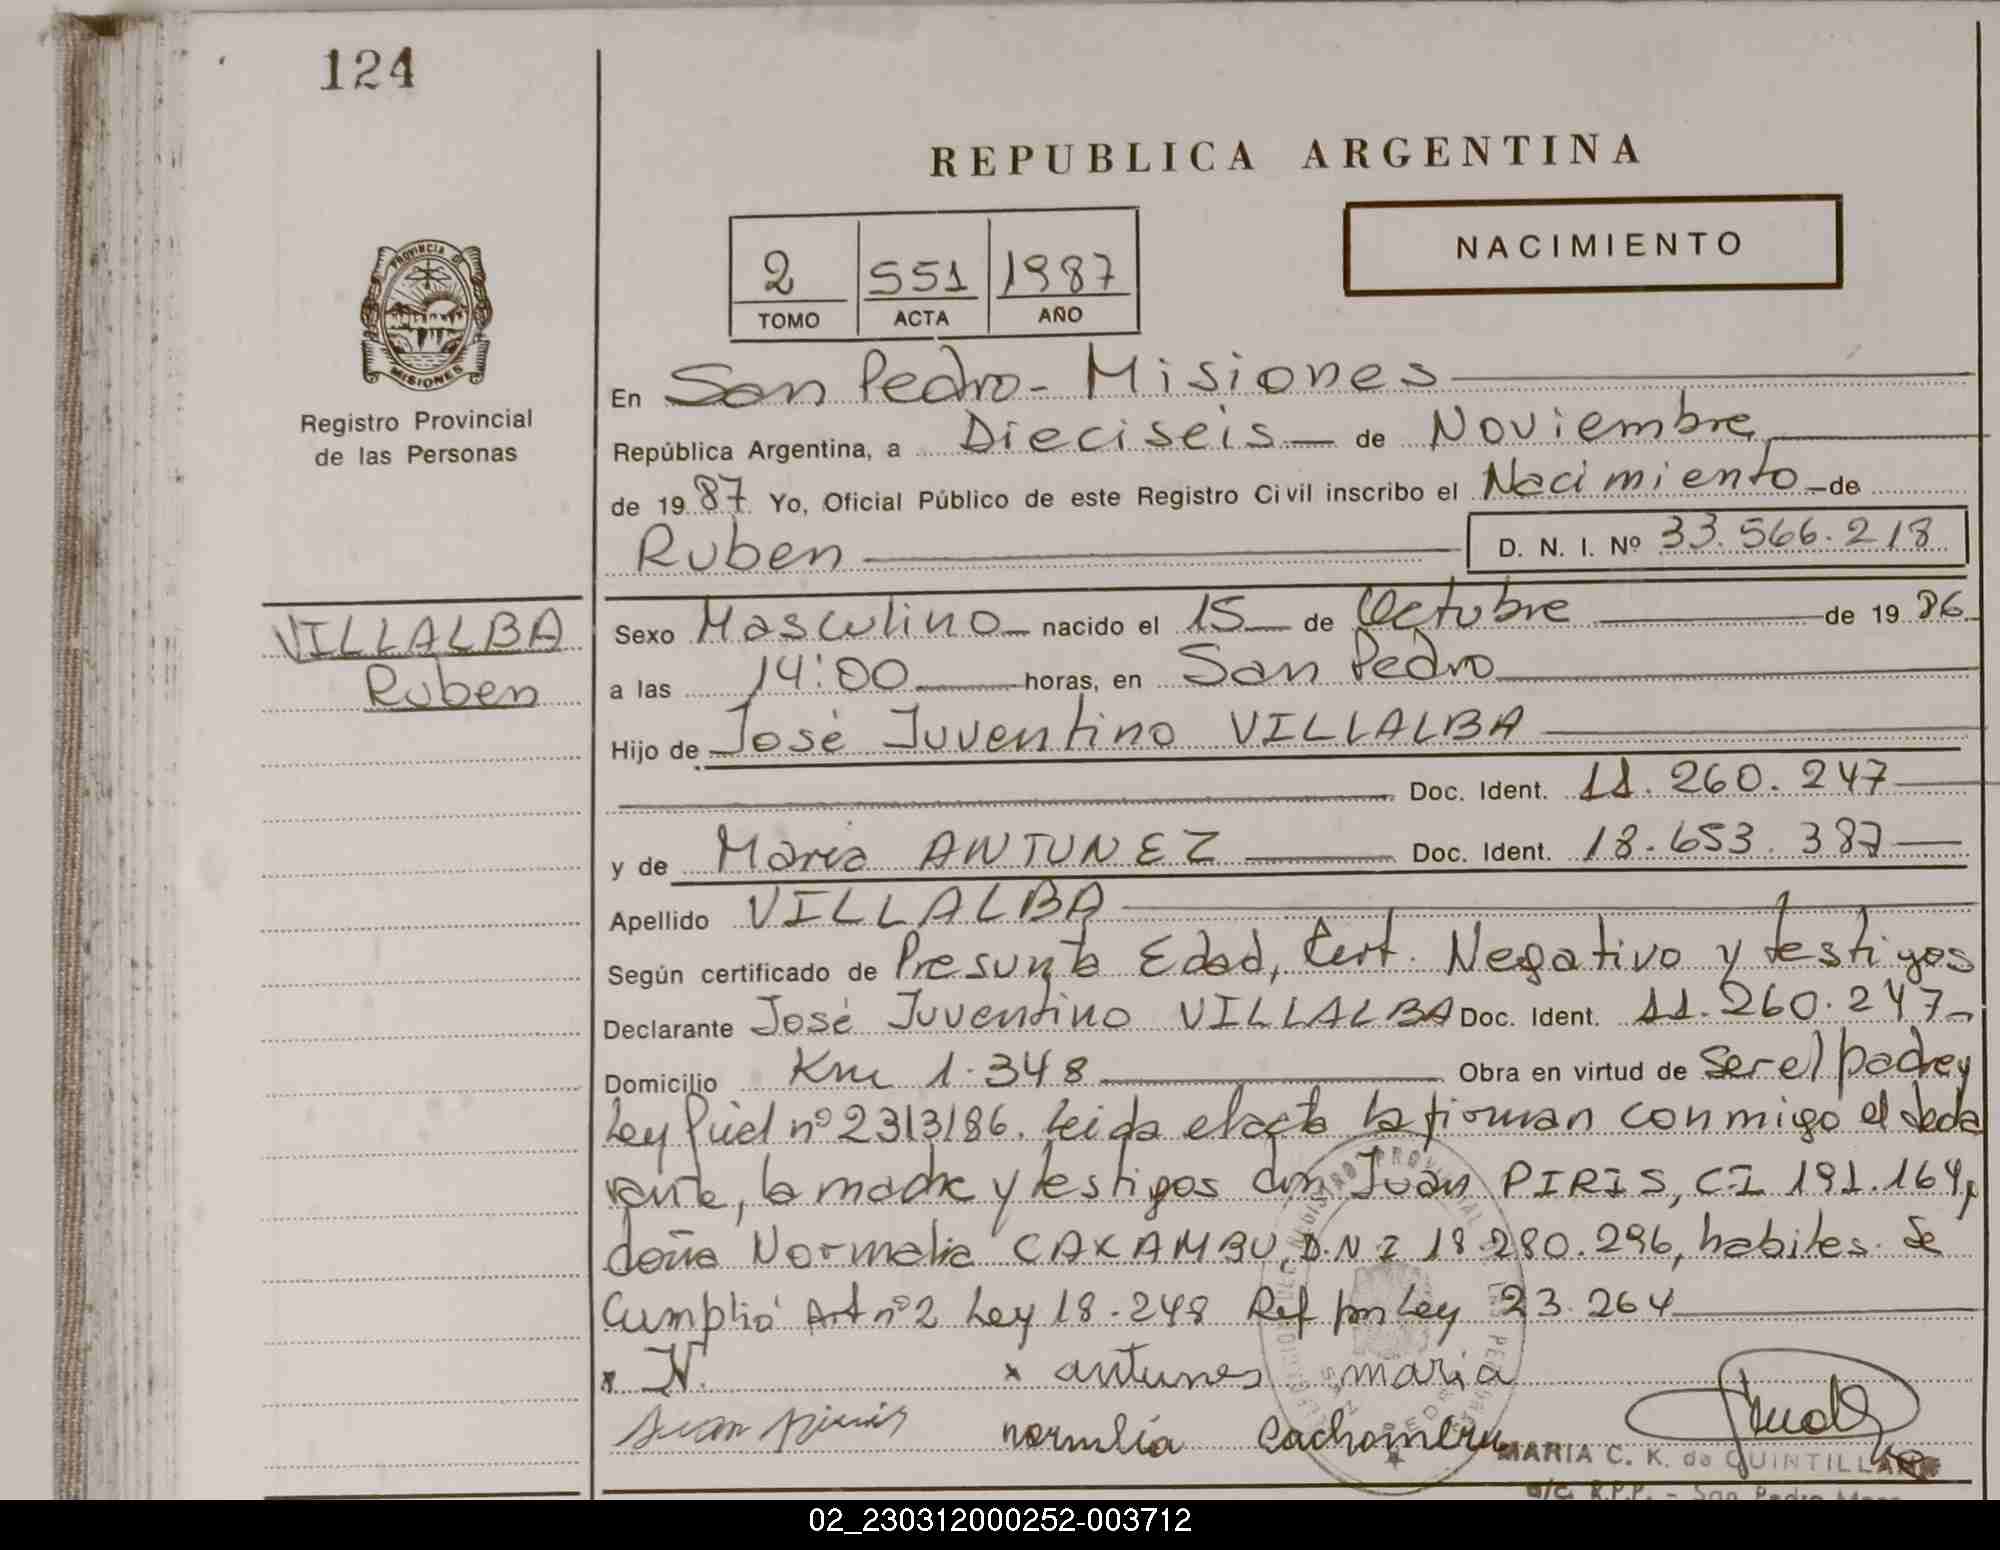 124
REPUBLICA ARGENTINA
NACIMIENTO
2 551 1987
TOMO ACTA AÑO
PROVINCIA D
MISIONES
Registro Provincial
de las Personas
En San Pedro - Misiones
República Argentina, a Dieciseis de Noviembre
de 1987 Yo, Oficial Público de este Registro Civil inscribo el Nacimiento de
Ruben D. N. I. Nº 33.566.218
VILLALBA
Ruben
Sexo Masculino nacido el 15 de Octubre de 1986
a las 14:00 horas, en San Pedro
Hijo de José Juventino VILLALBA
Doc. Ident. 11.260.247
y de Maria ANTUNEZ Doc. Ident. 18.653.387
Apellido VILLALBA
Según certificado de Presunta Edad, Cert. Negativo y testigos
Declarante José Juventino VILLALBA Doc. Ident. 11.260.247
Domicilio Km 1.348 Obra en virtud de Ser el padre y
Ley Pciel nº 2313/86. Leida el acta la firman conmigo el decla
rante, la madre y testigos don Juan PIRIS, C.I 191.164,
doña Normelia CAXAMBU, D.N I 18.280.296, habiles. Se
Cumplió Art nº 2 Ley 18.248 Ref por Ley 23.264
x antunes maria
Juan piris normlia Cachombru
MARIA C. K. de QUINTILLAN
a/c. R.P.P. - San Pedro
02_230312000252-003712